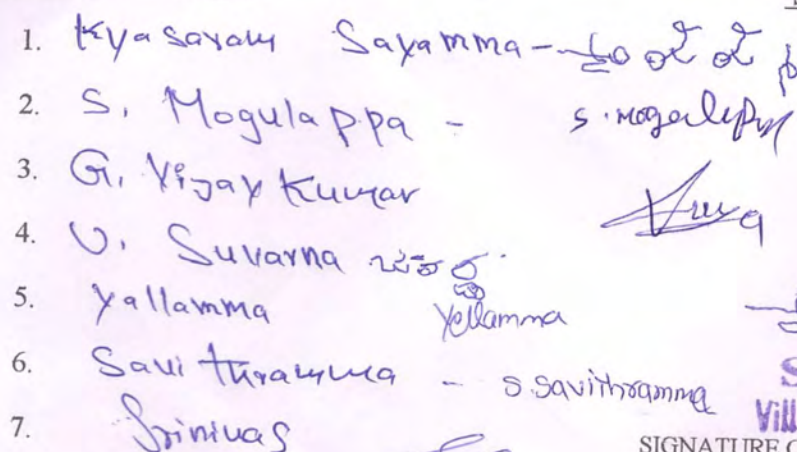 1. Kyasaram Sayamma -
2. S. Mogulappa - S. Mogulappa
3. G. Vijay Kumar
4. U. Suvarna
5. Yallamma Yellamma
6. Savithramma - S. Savithramma
7. Srinivas
SIGNATURE